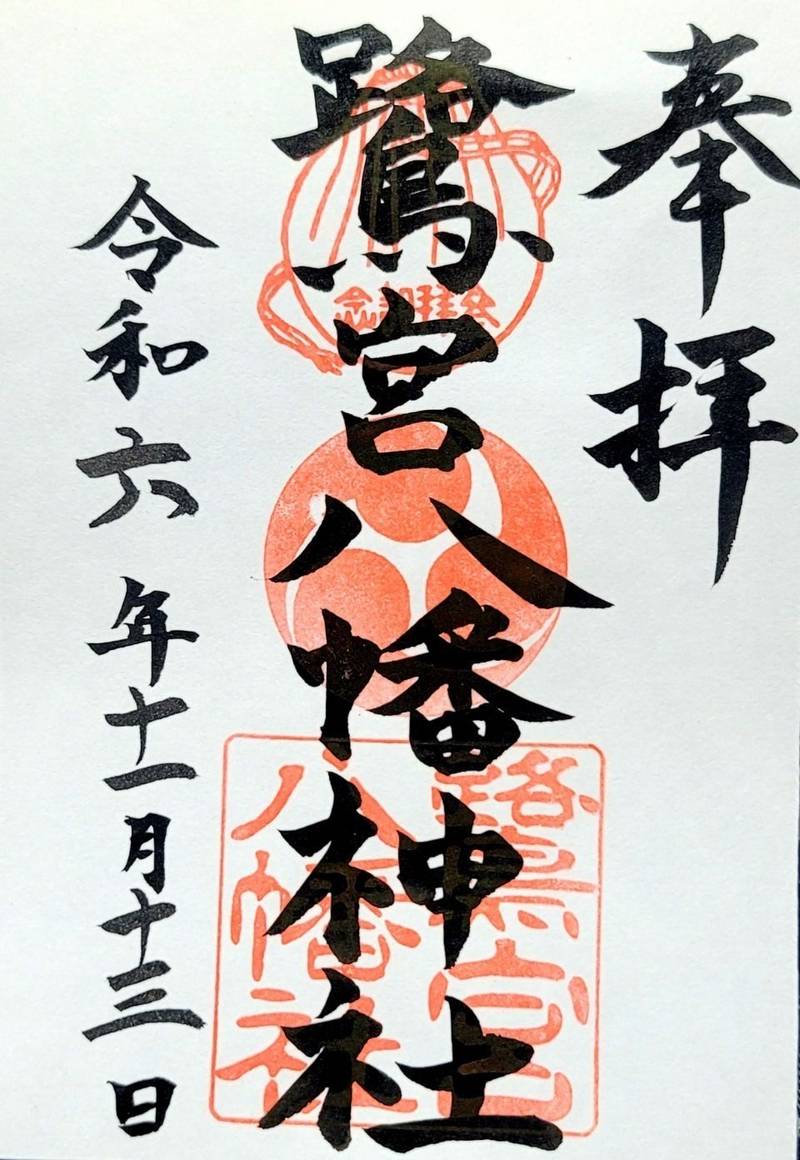 奉拝
鷺宮八幡神社
令和六年十一月十三日
鷺宮
八幡社